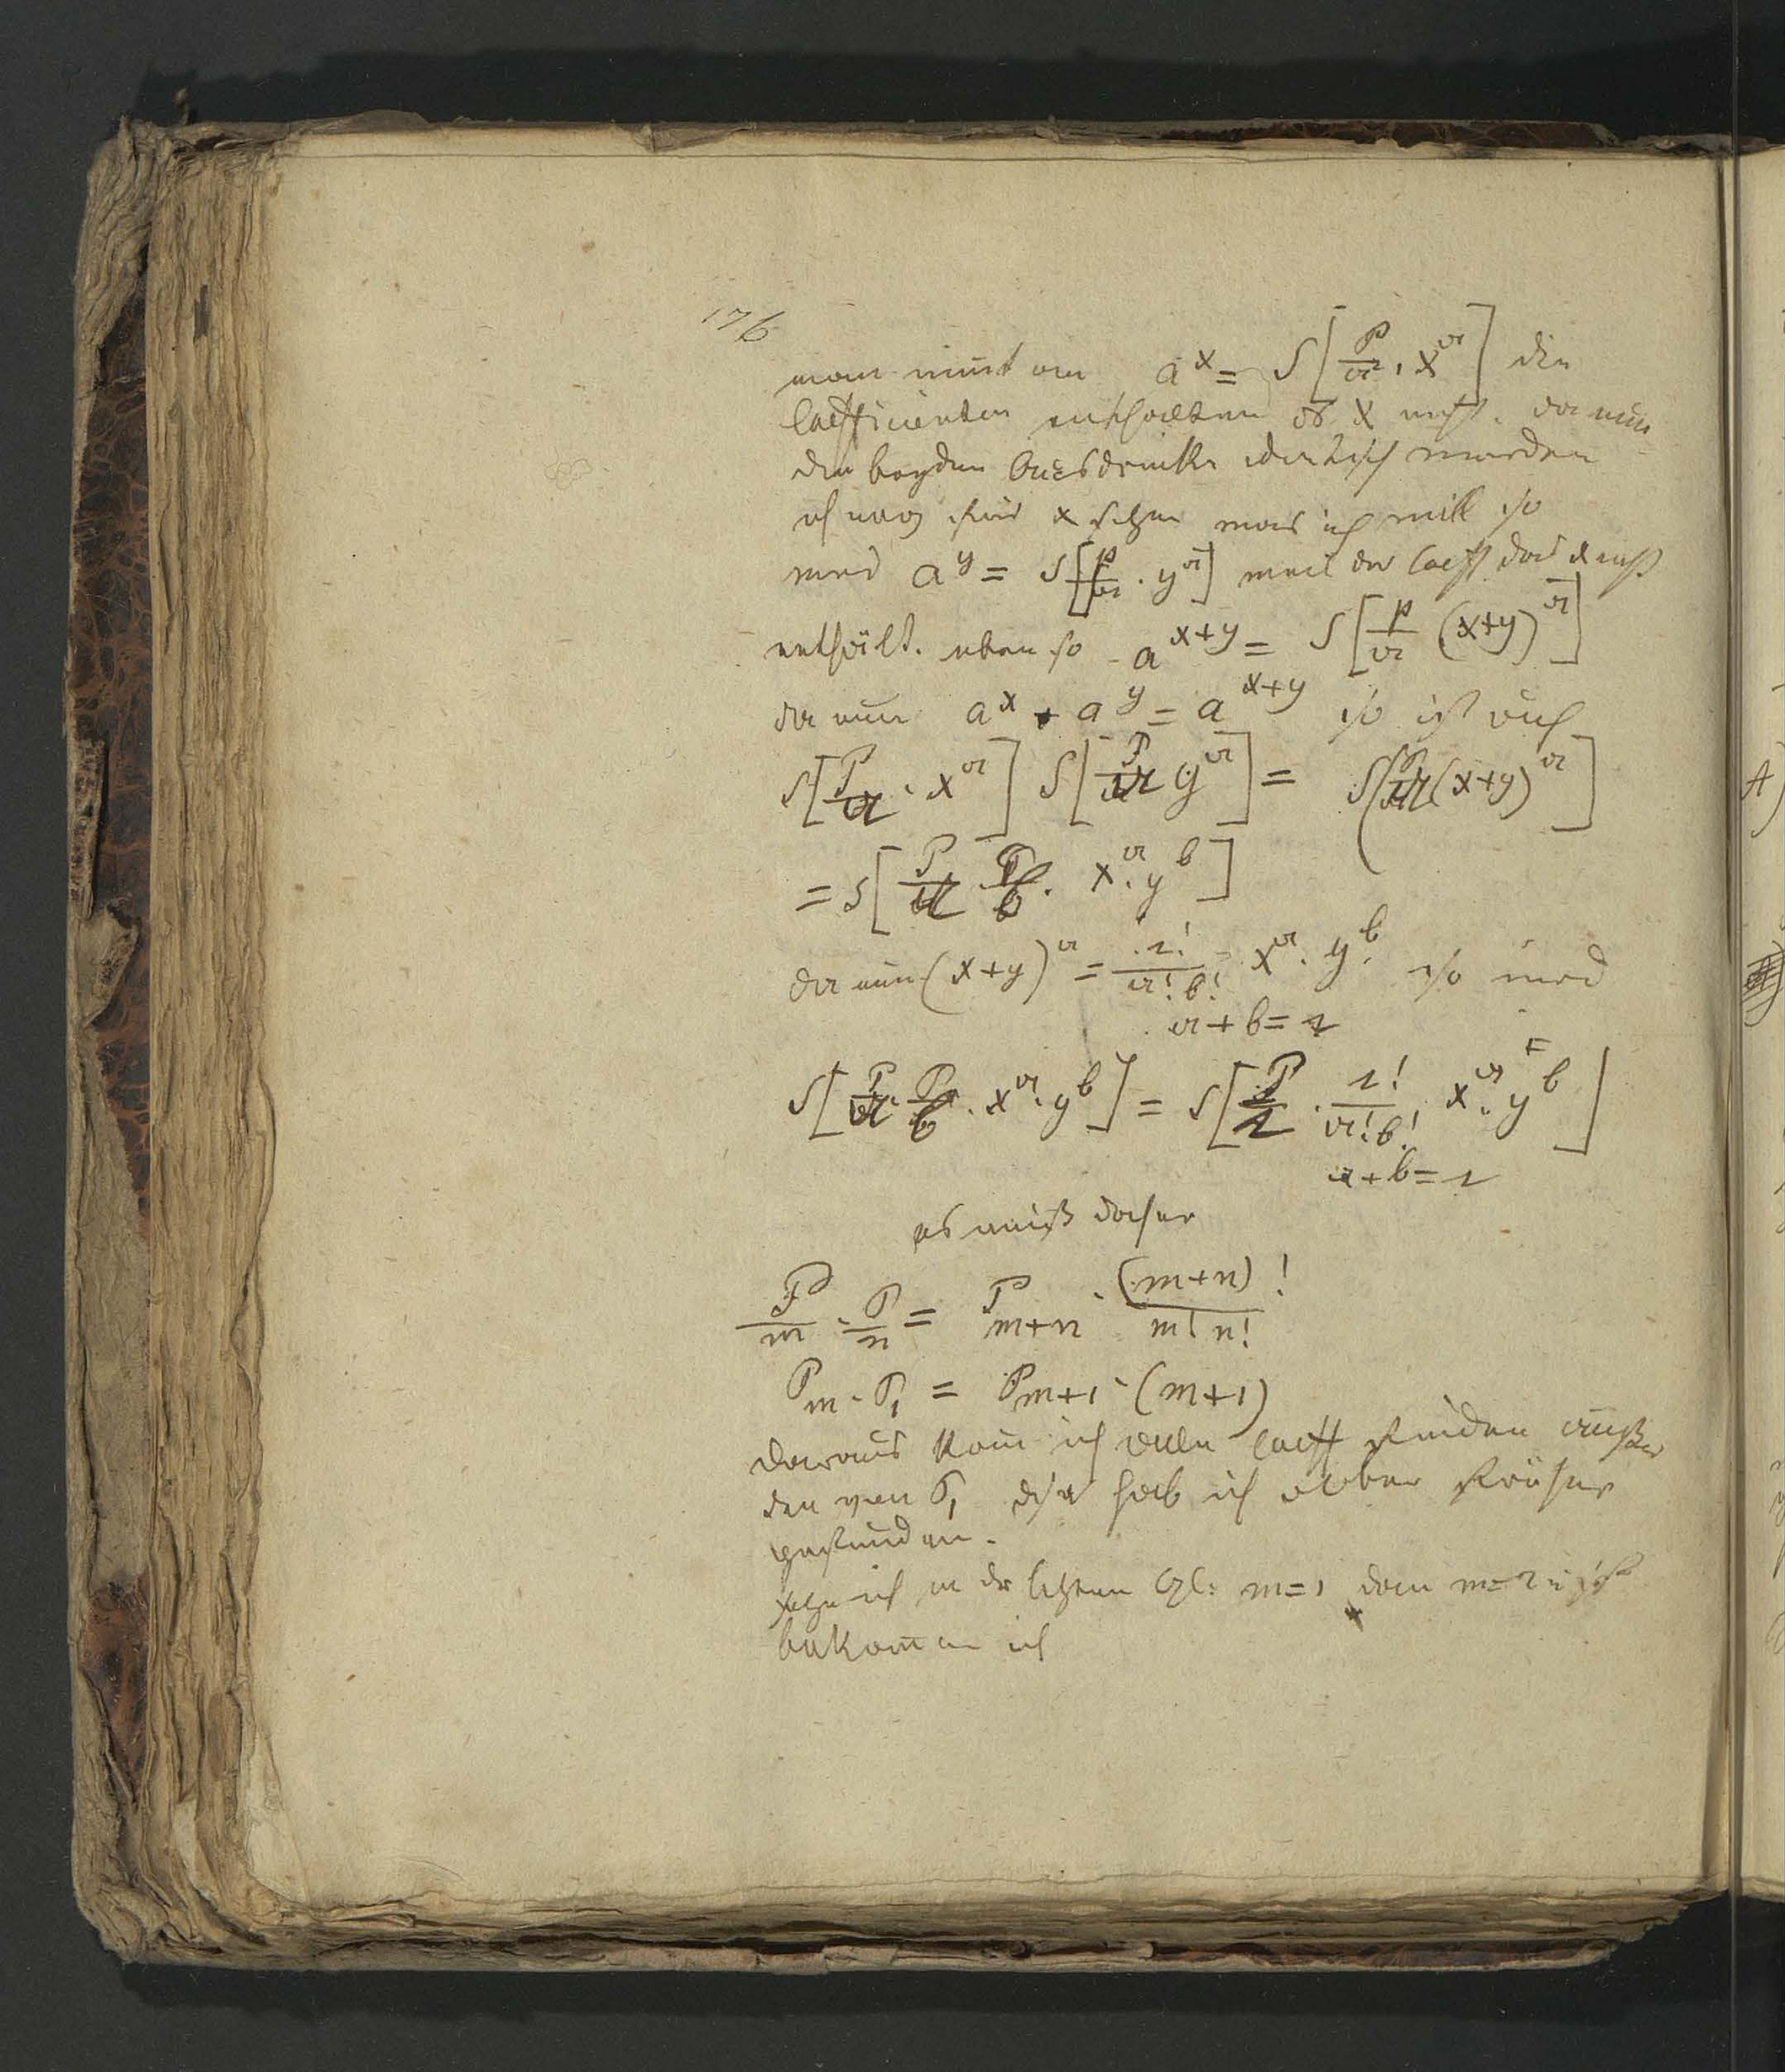 176
man nimt an a^x = S[P/a · x^a] die
Coefficienten enthalten das x nicht. da nun
die beyden Ausdrücke identisch werden
ich mag für x setzen was ich will so
wird a^y = S[p/a · y^a] weil der Coeff das x nicht
enthält. eben so a^{x+y} = S[p/a (x+y)^a]
da nun a^x · a^y = a^{x+y} so ist auch
S[P/a · x^a] S[P/a y^a] = S[P/a (x+y)^a]
= S[P/a · P/b · x^a · y^b]
da nun (x+y)^a = r!/(a! b!) x^a · y^b. so wird
a+b=r
S[P/a · P/b · x^a · y^b] = S[P/r · r!/(a! b!) x^a · y^b]
a+b=r
es muß daher
P/m · P/n = P_{m+n} · (m+n)!/(m! n!)
P_m · P_1 = P_{m+1} · (m+1)
daraus kan ich alle Coeff finden außer
den von P_1 hab ich aber früher
gefunden.
setze ich in der letzten Gl: m=1 dan m=2
bekomme ich
A)